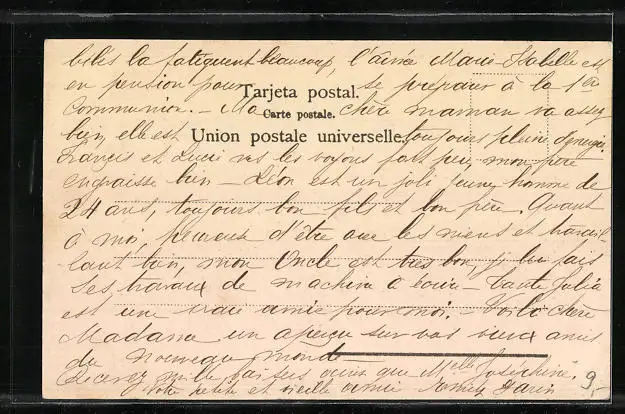 bébés la fatiguent beaucoup, l'ainée Marie-Isabelle est
en pension pour se préparer à la 1ère
Tarjeta postal.
Communion. - Ma chère maman va assez
Carte postale.
bien, elle est toujours pleine d'énergie.
Union postale universelle.
Francis et Lucie nous les voyons fort peu, mon père
engraisse bien - Léon est un joli jeune homme de
24 ans, toujours bon fils et bon père. Quant
à moi, heureuse d'être avec les miens et travail-
lant bien, mon Oncle est très bon, j'y fais
ses travaux de machine à écrire - Tante Julia
est une vraie amie pour moi. - Voilà chère
Madame un aperçu sur vos vieux amis
du Nouveau monde
Recevez mille baisers ainsi que Melle Joséphine.
Votre petite et vieille amie
9.-